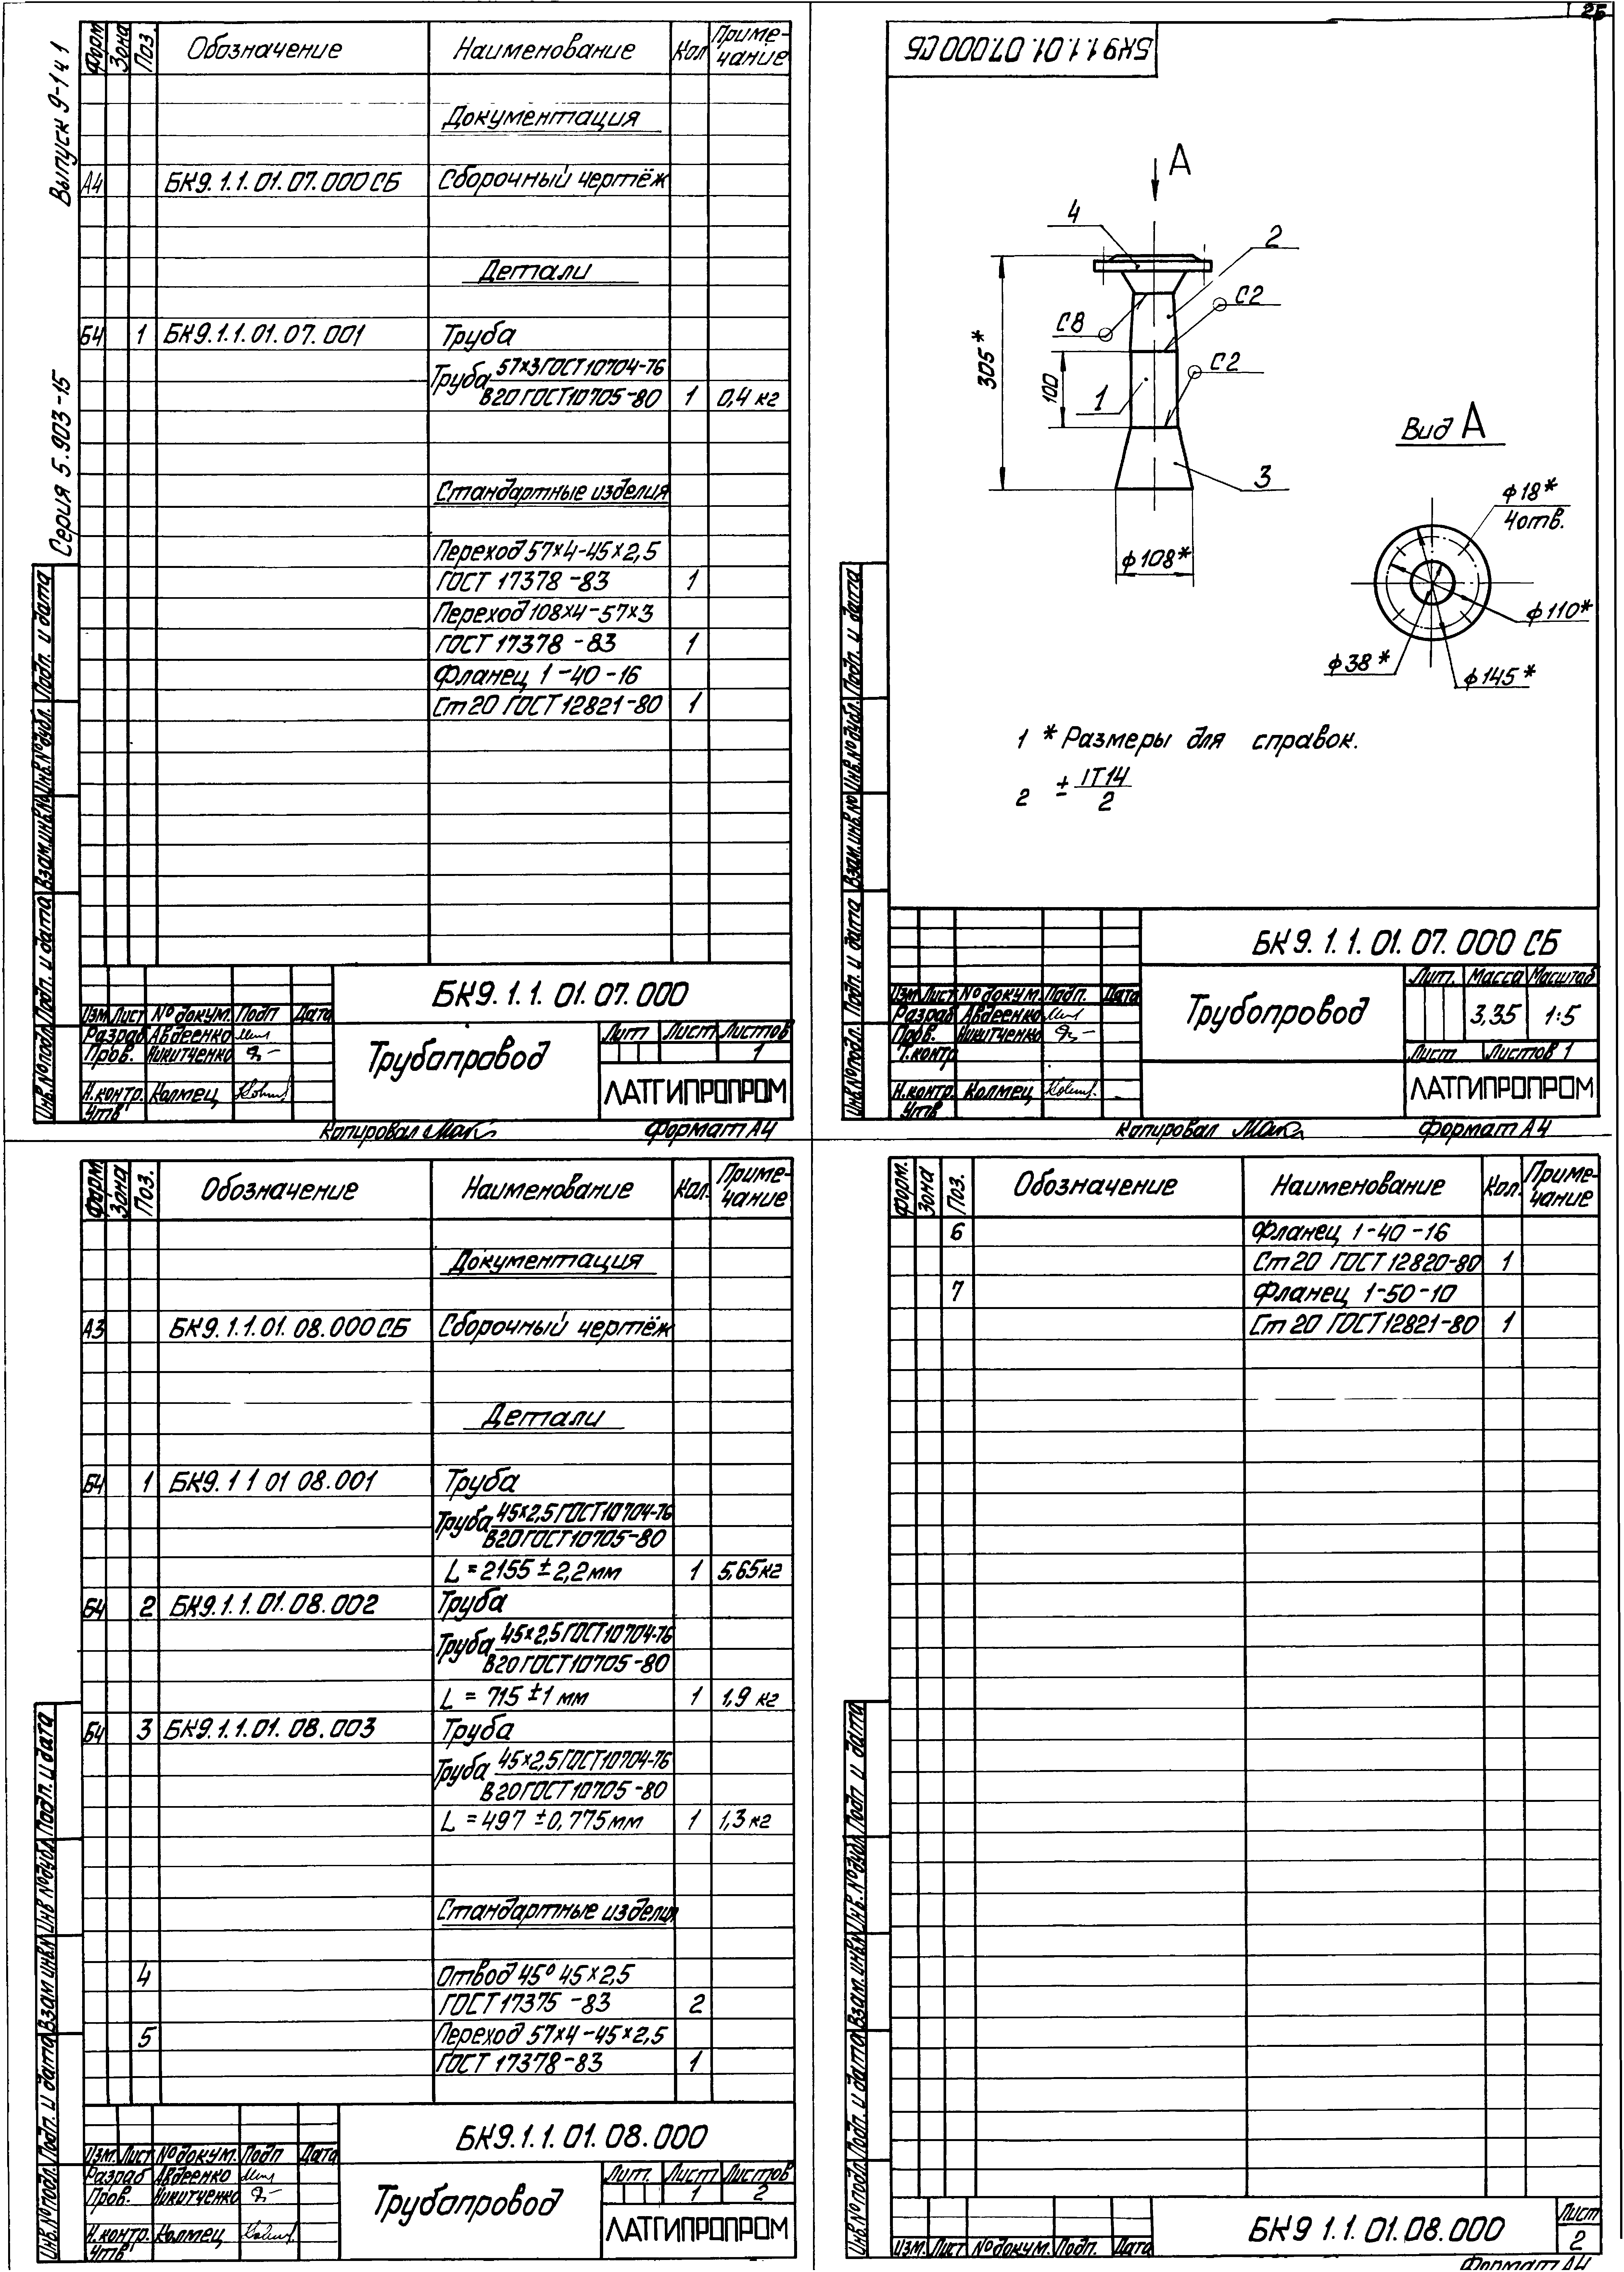 25
Выпуск 9-1 ч 1
Серия 5.903-15
Форм. Зона Поз. Обозначение Наименование Кол Приме-чание
Документация
А4 БК9.1.1.01.07.000СБ Сборочный чертёж
Детали
Б4 1 БК9.1.1.01.07.001 Труба
Труба 57×3 ГОСТ 10704-76
В20 ГОСТ 10705-80 1 0,4 кг
Стандартные изделия
Переход 57×4-45×2,5
ГОСТ 17378-83 1
Переход 108×4-57×3
ГОСТ 17378-83 1
Фланец 1-40-16
Ст 20 ГОСТ 12821-80 1
Инв.№подл. Подп. и дата Взам.инв.№ Инв.№дубл. Подп. и дата
БК9.1.1.01.07.000
Изм Лист № докум. Подп Дата
Разраб Авдеенко
Пров. Никитченко
Н.контр. Колмец
Утв
Трубопровод
Лит Лист Листов
1
ЛАТГИПРОПРОМ
Копировал Формат А4
БК9.1.1.01.07.000СБ
А
4
2
С8
С2
305*
100
1
С2
3
ф108*
Вид А
ф18*
4отв.
ф110*
ф38*
ф145*
1 * Размеры для справок.
2 ± IT14
2
Инв.№подл. Подп. и дата Взам.инв.№ Инв.№дубл. Подп. и дата
БК9.1.1.01.07.000 СБ
Изм Лист № докум. Подп. Дата
Разраб Авдеенко
Пров. Никитченко
Т.контр
Н.контр. Колмец
Утв
Трубопровод
Лит. Масса Масштаб
3,35 1:5
Лист Листов 1
ЛАТГИПРОПРОМ
Копировал Формат А4
Форм. Зона Поз. Обозначение Наименование Кол. Приме-чание
Документация
А3 БК9.1.1.01.08.000СБ Сборочный чертёж
Детали
Б4 1 БК9.1 1 01 08.001 Труба
Труба 45×2,5 ГОСТ 10704-76
В20 ГОСТ 10705-80
L = 2155 ± 2,2 мм 1 5,65кг
Б4 2 БК9.1.1.01.08.002 Труба
Труба 45×2,5 ГОСТ 10704-76
В20 ГОСТ 10705-80
L = 715 ±1 мм 1 1,9 кг
Б4 3 БК9.1.1.01.08.003 Труба
Труба 45×2,5 ГОСТ 10704-76
В20 ГОСТ 10705-80
L = 497 ±0,775мм 1 1,3 кг
Стандартные изделия
4 Отвод 45° 45×2,5
ГОСТ 17375-83 2
5 Переход 57×4-45×2,5
ГОСТ 17378-83 1
Инв.№подл. Подп. и дата Взам инв.№ Инв №дубл. Подп. и дата
БК9.1.1.01.08.000
Изм. Лист № докум. Подп Дата
Разраб Авдеенко
Пров. Никитченко
Н.контр. Колмец
Утв
Трубопровод
Лит. Лист Листов
1 2
ЛАТГИПРОПРОМ
Форм. Зона Поз. Обозначение Наименование Кол. Приме-чание
6 Фланец 1-40-16
Ст 20 ГОСТ 12820-80 1
7 Фланец 1-50-10
Ст 20 ГОСТ 12821-80 1
Инв.№подл. Подп. и дата Взам.инв.№ Инв.№дубл. Подп и дата
Изм. Лист № докум. Подп. Дата
БК9 1.1.01.08.000
Лист
2
Формат А4